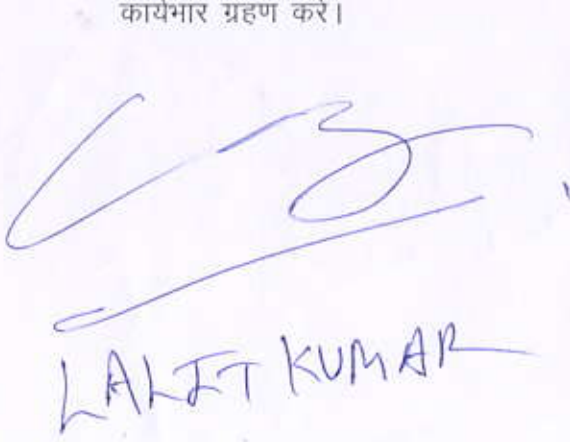 कार्यभार ग्रहण करे।
LALIT KUMAR